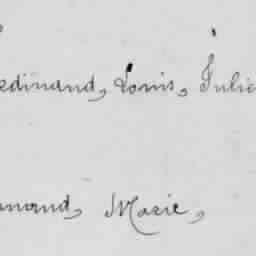 edinand, Louis, Julie
mand, Marie,